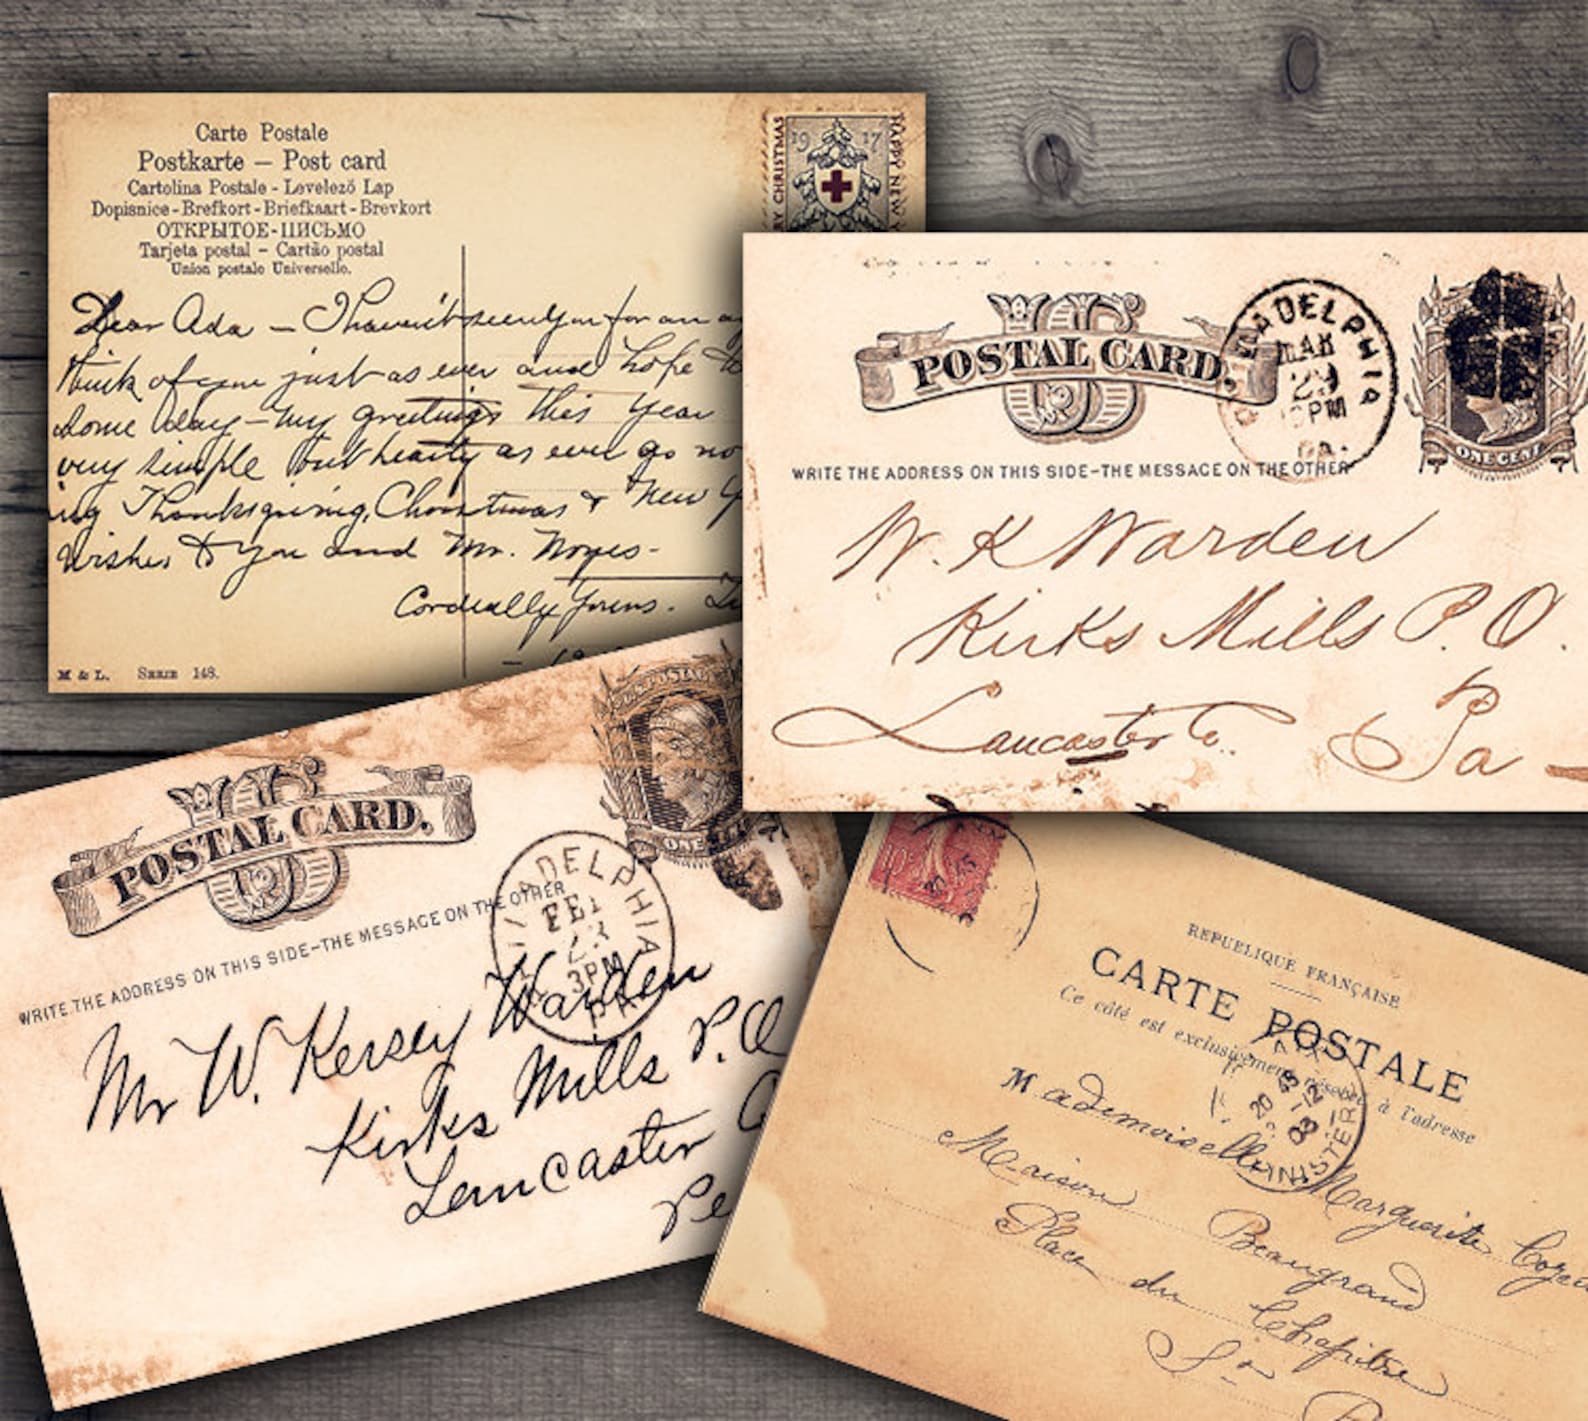 Carte Postale
Postkarte – Post card
Cartolina Postale - Levelező Lap
Dopisnice - Brefkort - Briefkaart - Brevkort
ОТКРЫТОЕ-ПИСЬМО
Tarjeta postal – Cartão postal
Union postale Universelle.
19 17
HAPPY NEW
RY CHRISTMAS
Dear Ada – I haven't seen you for an
think of you just as ever and hope
some day – my greetings this year
very simple but hearty as ever go
ing Thanksgiving, Christmas & New
Wishes to you and Mr. Noyes-
Cordially Yours.
M & L. SERIE 148.
US
POSTAL CARD.
ADELPHIA
MAR
29
PM
PA.
ONE CENT
WRITE THE ADDRESS ON THIS SIDE–THE MESSAGE ON THE OTHER
W. K Warden
Kirks Mills P. O.
Lancaster Co.
Pa
US POSTAL
US
POSTAL CARD.
ONE
WRITE THE ADDRESS ON THIS SIDE–THE MESSAGE ON THE OTHER
ADELPHIA
FEB
23
3PM
PA
Mr W. Kersey Warden
Kirks Mills P.O
Lancaster
Pe
10c
REPUBLIQUE FRANÇAISE
CARTE POSTALE
Ce côté est exclusivement réservé à l'adresse
20
-12
03
FINISTERE
Mademoiselle Marguerite
Maison Beaugrand
Place du Chapitre